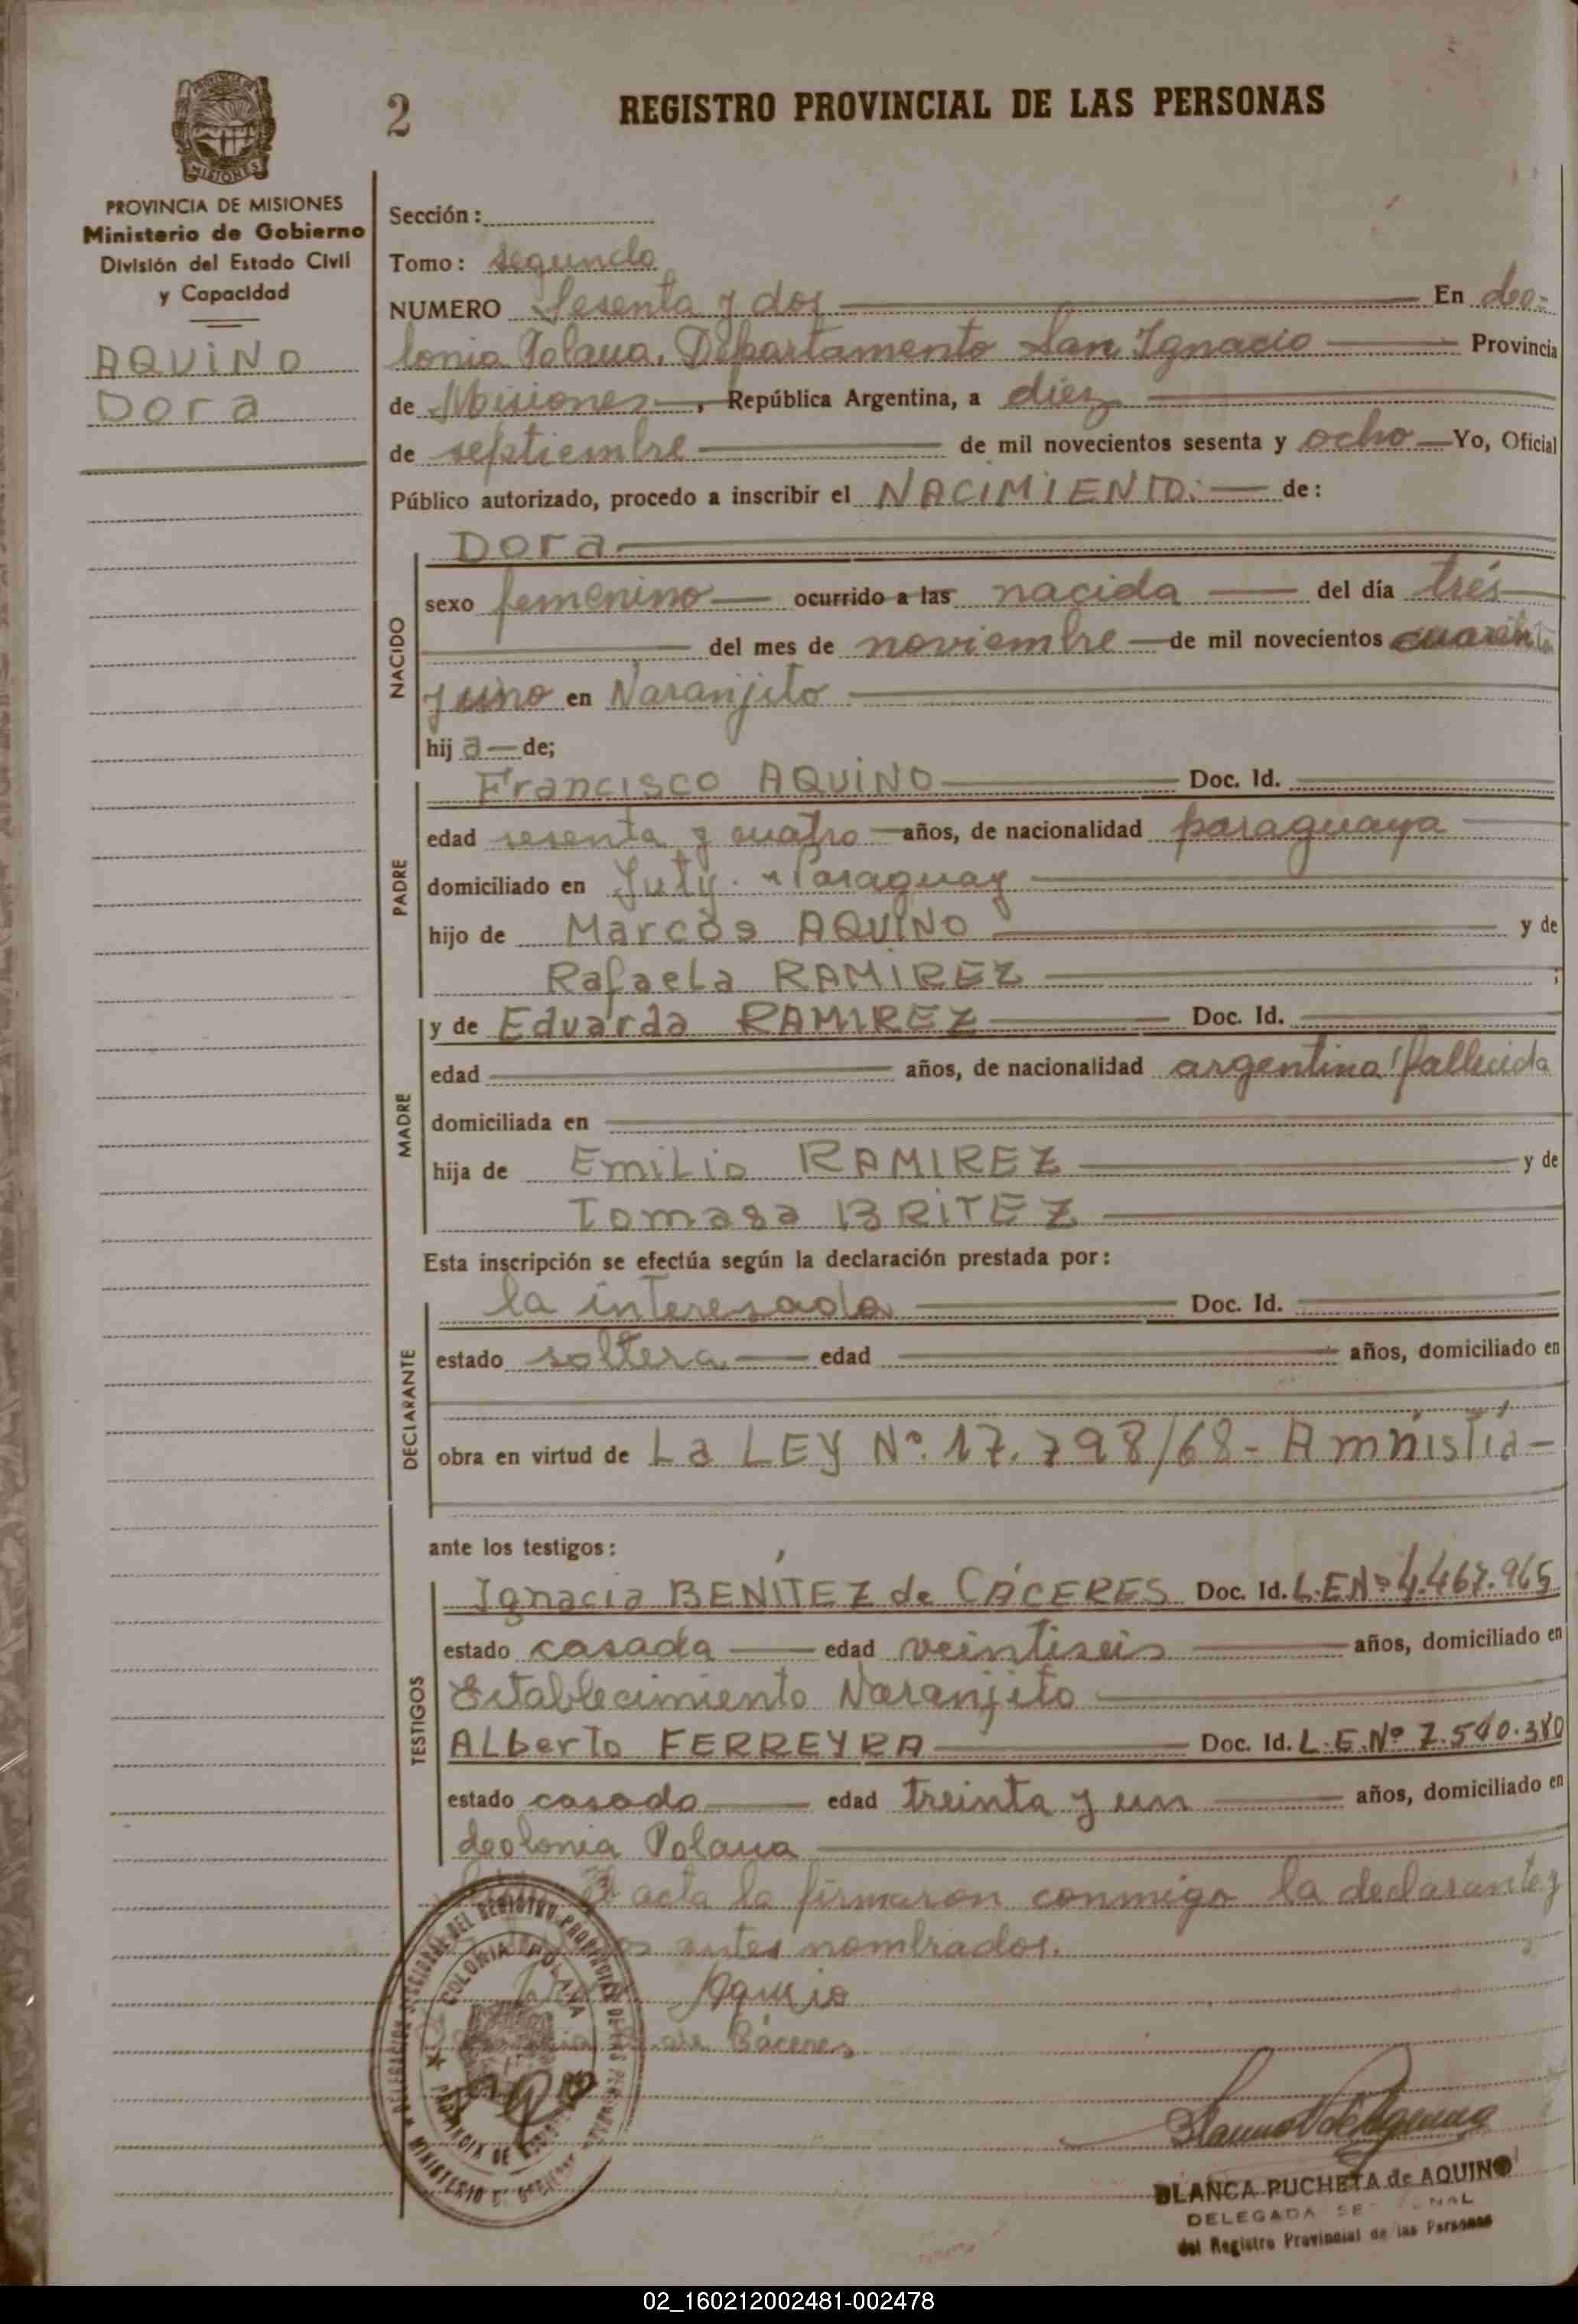 2
REGISTRO PROVINCIAL DE LAS PERSONAS
PROVINCIA DE MISIONES
Ministerio de Gobierno
División del Estado Civil
y Capacidad
AQUINO
Dora
Sección:
Tomo: segundo
NUMERO Sesenta y dos En Co-
lonia Polana, Departamento San Ignacio Provincia
de Misiones, República Argentina, a diez
de septiembre de mil novecientos sesenta y ocho Yo, Oficial
Público autorizado, procedo a inscribir el NACIMIENTO: de:
NACIDO
Dora
sexo femenino ocurrido a las nacida del día trés
del mes de noviembre de mil novecientos cuarenta
y uno en Naranjito
hija de;
PADRE
Francisco AQUINO Doc. Id.
edad sesenta y cuatro años, de nacionalidad paraguaya
domiciliado en Yuty - Paraguay
hijo de Marcos AQUINO y de
Rafaela RAMIREZ ;
MADRE
y de Eduarda RAMIREZ Doc. Id.
edad años, de nacionalidad argentina fallecida
domiciliada en
hija de Emilio RAMIREZ y de
Tomasa BRITEZ
Esta inscripción se efectúa según la declaración prestada por:
DECLARANTE
la interesada Doc. Id.
estado soltera edad años, domiciliado en
obra en virtud de La LEY Nº. 17.798/68- Amnistía-
ante los testigos:
TESTIGOS
Ignacia BENÍTEZ de CÁCERES Doc. Id. L.E.Nº 4.467.965
estado casada edad veintiseis años, domiciliado en
Establecimiento Naranjito
ALberto FERREYRA Doc. Id. L.E.Nº 7.540.380
estado casado edad treinta y un años, domiciliado en
Colonia Polana
el acta la firmaron conmigo la declarante y
antes nombrados.
Aquino
de Cáceres
COLONIA POLANA
BLANCA PUCHETA de AQUINO
DELEGADA
del Registro Provincial de las Personas
02_160212002481-002478